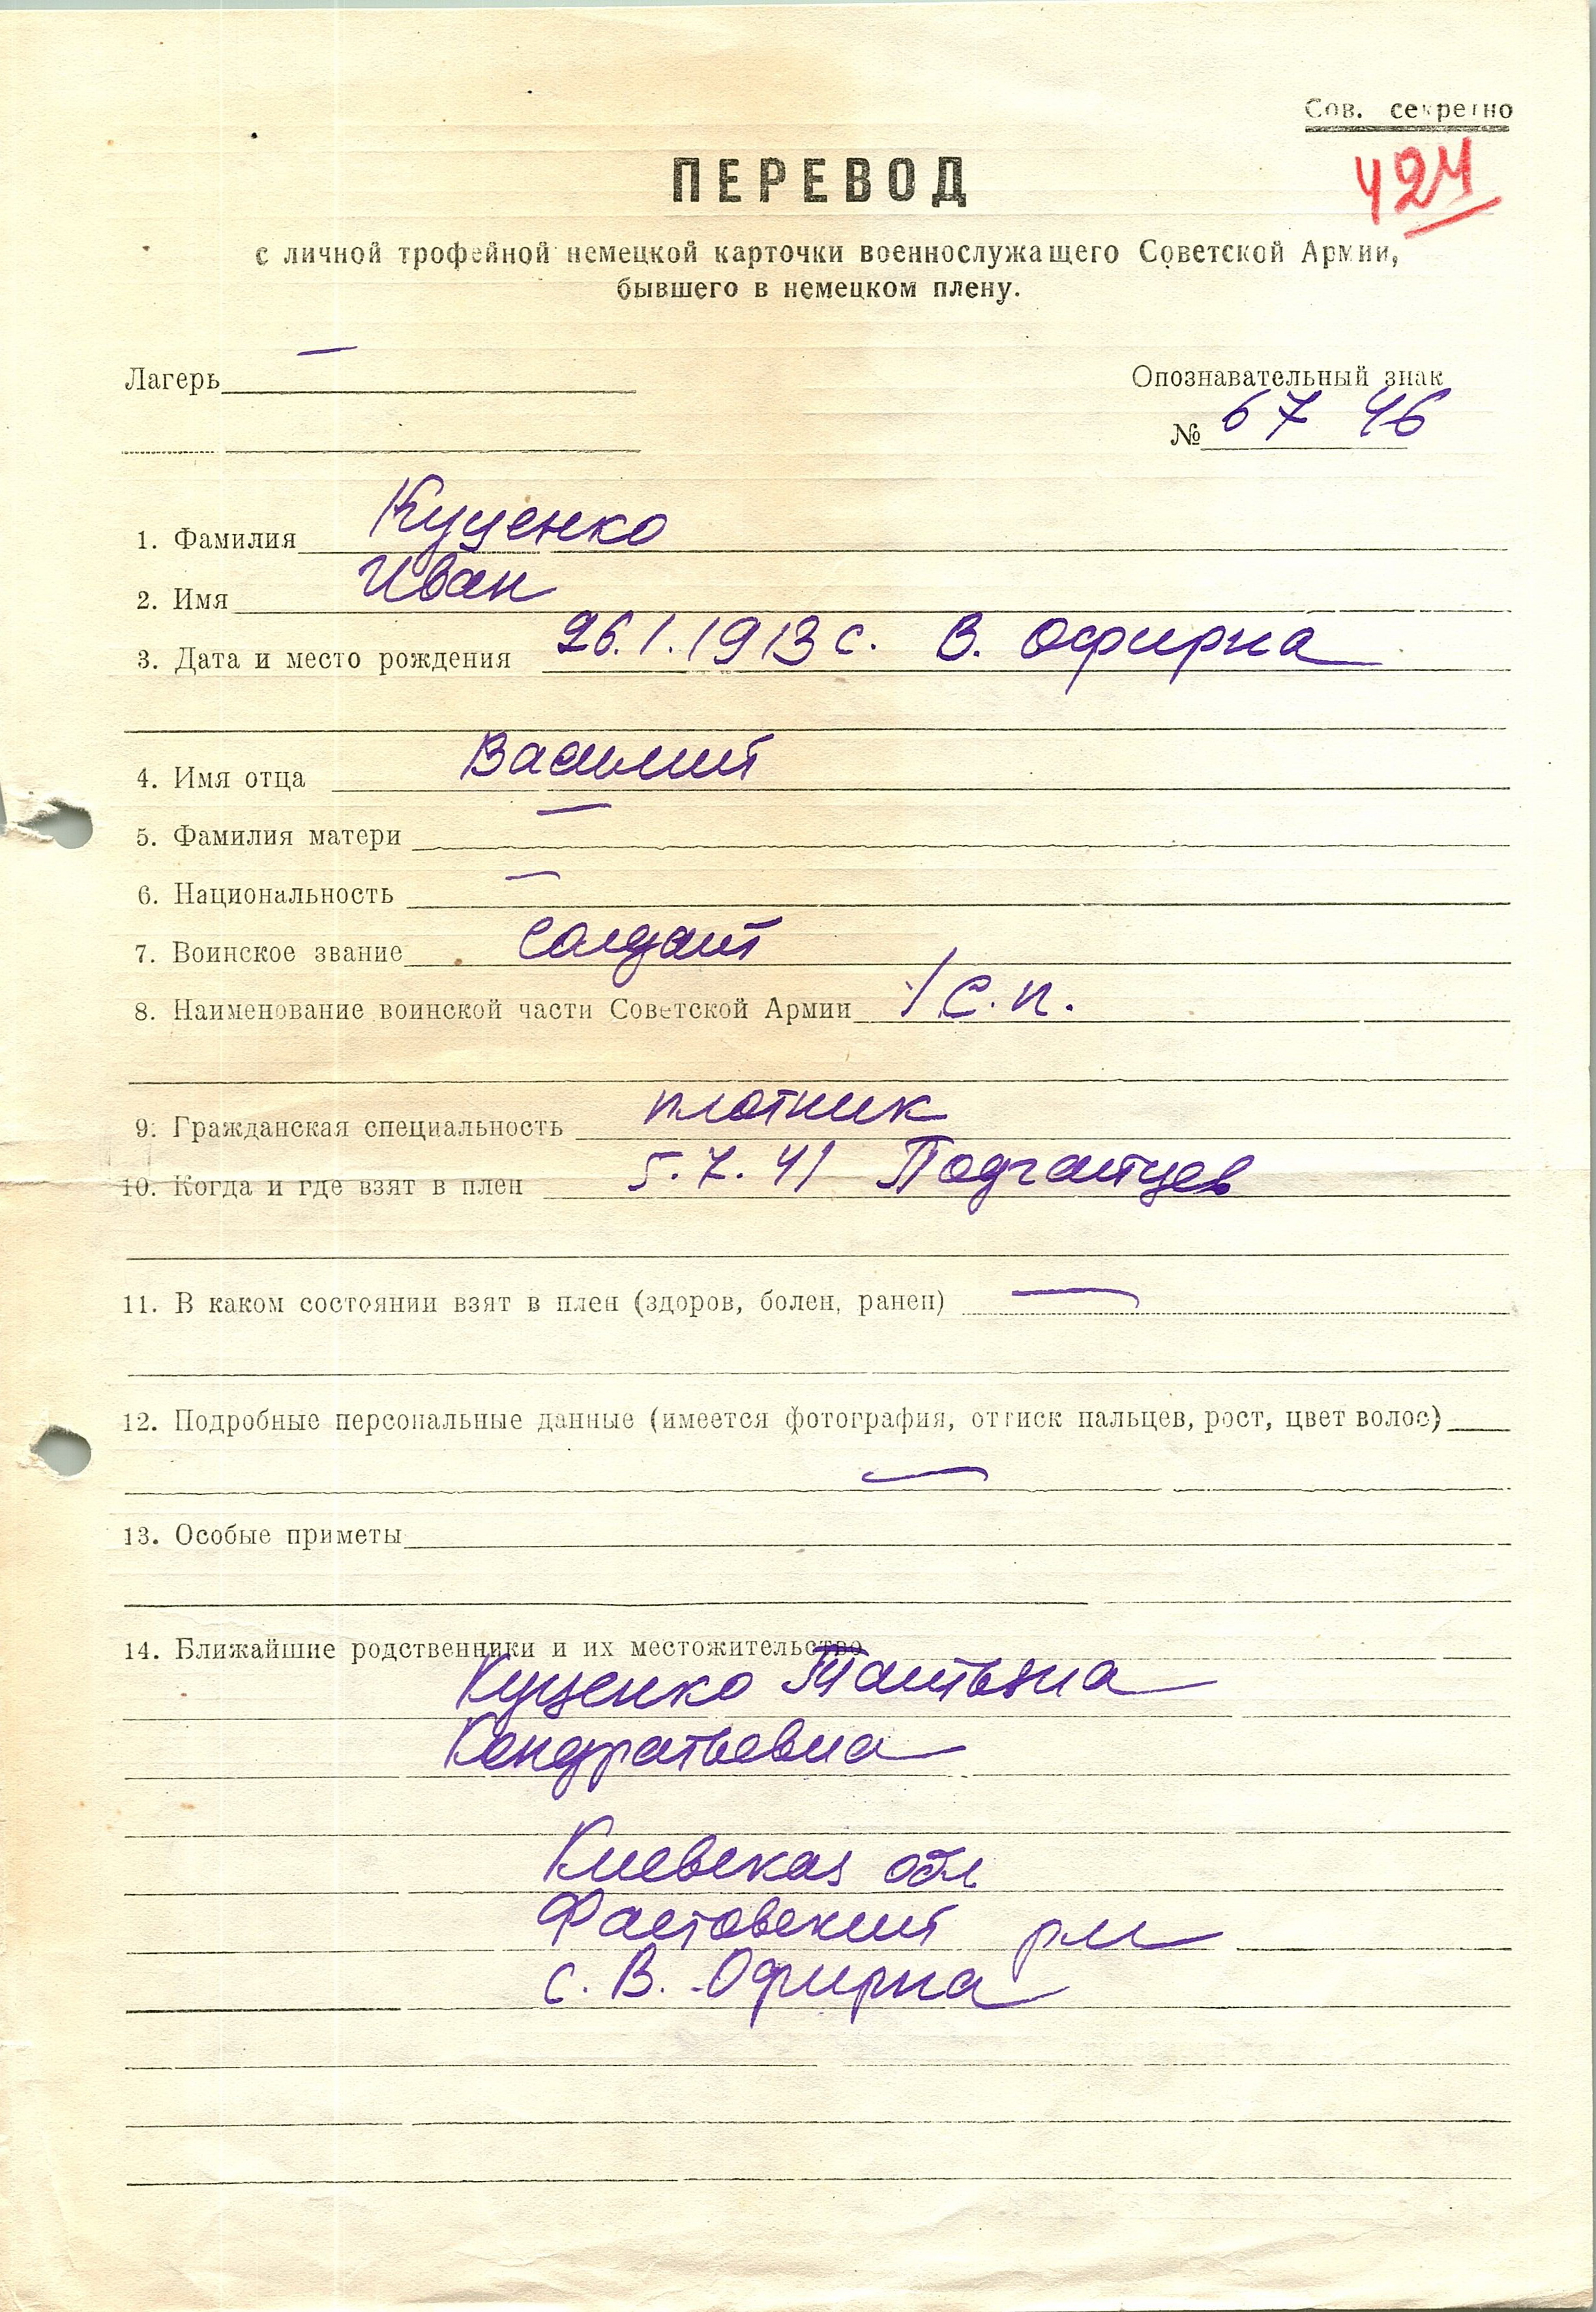 Сов. секретно
424
ПЕРЕВОД
с личной трофейной немецкой карточки военнослужащего Советской Армии,
бывшего в немецком плену.
Лагерь —
Опознавательный знак
№ 67 46
1. Фамилия Куценко
2. Имя Иван
3. Дата и место рождения 26.1.1913 с. В. Офирна
4. Имя отца Василий
5. Фамилия матери —
6. Национальность —
7. Воинское звание солдат
8. Наименование воинской части Советской Армии / с.п.
9. Гражданская специальность плотник
10. Когда и где взят в плен 5.7.41 Подгайцев
11. В каком состоянии взят в плен (здоров, болен, ранен) —
12. Подробные персональные данные (имеется фотография, оттиск пальцев, рост, цвет волос)
—
13. Особые приметы
14. Ближайшие родственники и их местожительство
Куценко Татьяна
Кондратьевна
Киевская обл
Фастовский рн
с. В. Офирна